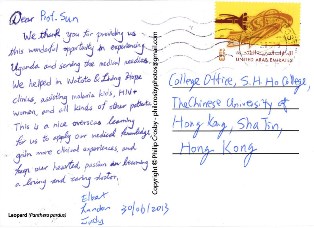 Dear Prof. Sun
We thank you for providing us
this wonderful opportunity in experiencing
Uganda and serving the medical needies.
We helped in Wakato & Living Hope
clinics, assisting malaria kids, HIV+
women, and all kinds of other patients.
This is a nice overseas learning
for us to apply our medical knowledge,
gain more clinical experiences, and
keep our hearted, passion in becoming
a loving and caring doctor.
Elbert
Landon
Judy
30/06/2013
Leopard (Panthera pardus)
Copyright © Philip Crosby - philcrosbyphoto@gmail.com
UNITED ARAB EMIRATES
College Office, S. H. Ho College,
The Chinese University of
Hong Kong, Sha Tin,
Hong Kong